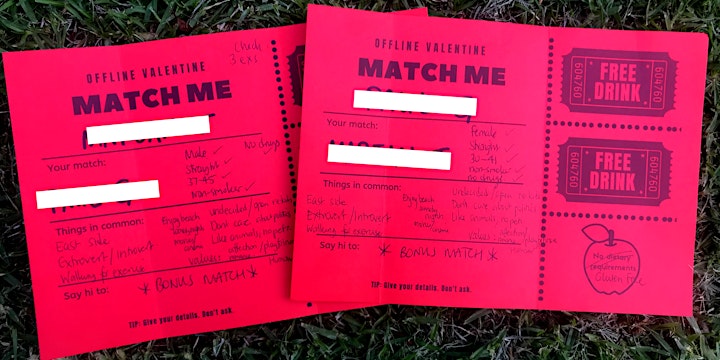 check
3 exs
OFFLINE VALENTINE
MATCH ME
Your match:
Male ✓ No drugs
Straight ✓
37-45 ✓
non-smoker ✓
Things in common:
East Side
Extrovert/introvert
Walking for exercise
Enjoy beach
undecided/open
Dont care
Like animals, no pets
values:
Say hi to:
* BONUS MATCH *
TIP: Give your details. Don't ask.
OFFLINE VALENTINE
MATCH ME
Your match:
Female ✓
Straight ✓
30-41 ✓
non-smoker ✓
no drugs ✓
Things in common:
East Side
Extrovert/introvert
Walking for exercise
Enjoy beach
undecided/open
Dont care
Like animals, no pets
values:
Say hi to:
* BONUS MATCH *
TIP: Give your details. Don't ask.
604760
FREE
DRINK
604760
604760
FREE
DRINK
604760
No dietary
requirements
Gluten Free